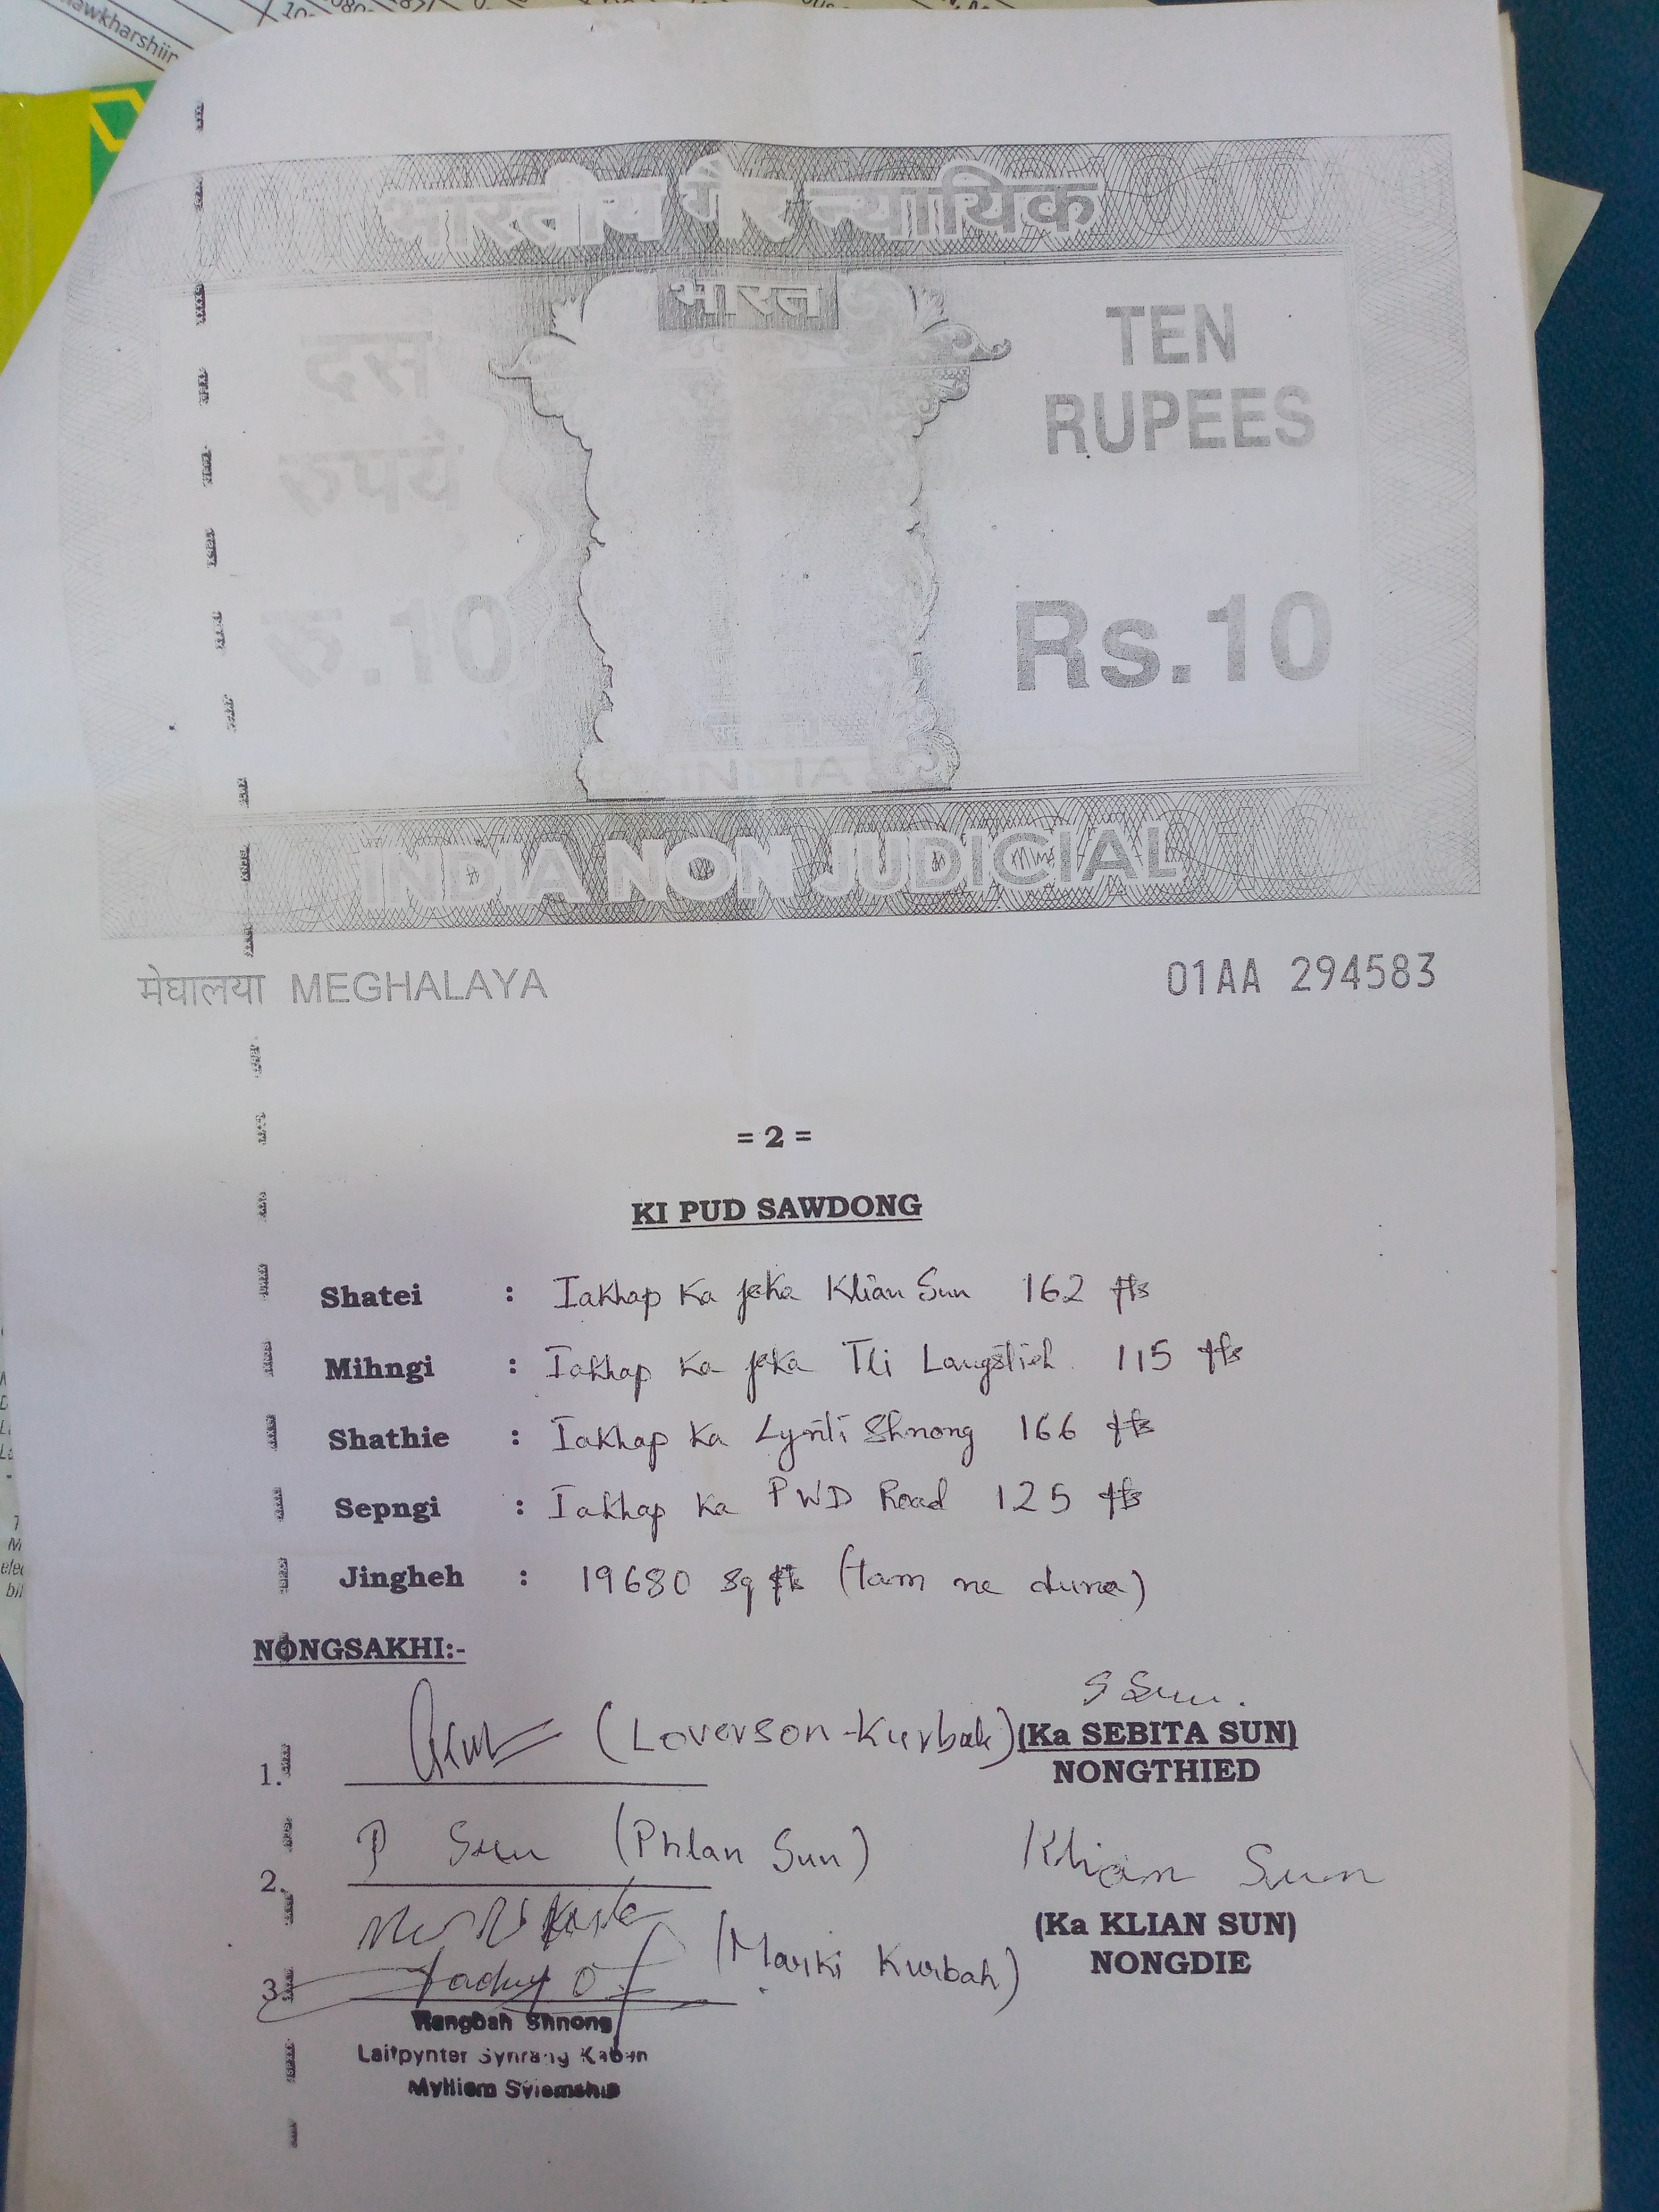 awkharshiin
भारतीय गैर न्यायिक
भारत
दस
रुपये
रु.10
TEN
RUPEES
Rs.10
INDIA
INDIA NON JUDICIAL
मेघालया MEGHALAYA
01AA 294583
= 2 =
KI PUD SAWDONG
Shatei : Iakhap Ka jaka Klian Sun 162 fts
Mihngi : Iakhap Ka jaka Tei Langstieh 115 fts
Shathie : Iakhap Ka Lynti Shnong 166 fts
Sepngi : Iakhap Ka PWD Road 125 fts
Jingheh : 19680 sq ft (tam ne duna)
NONGSAKHI:-
S Sun.
1. (Loverson Kurbah) (Ka SEBITA SUN)
NONGTHIED
2. P Sun (Phlan Sun)
Klian Sun
(Ka KLIAN SUN)
NONGDIE
3. (Marki Kurbah)
Rangbah Shnong
Laitpynter Synrang Kaban
Mylliem Syiemship